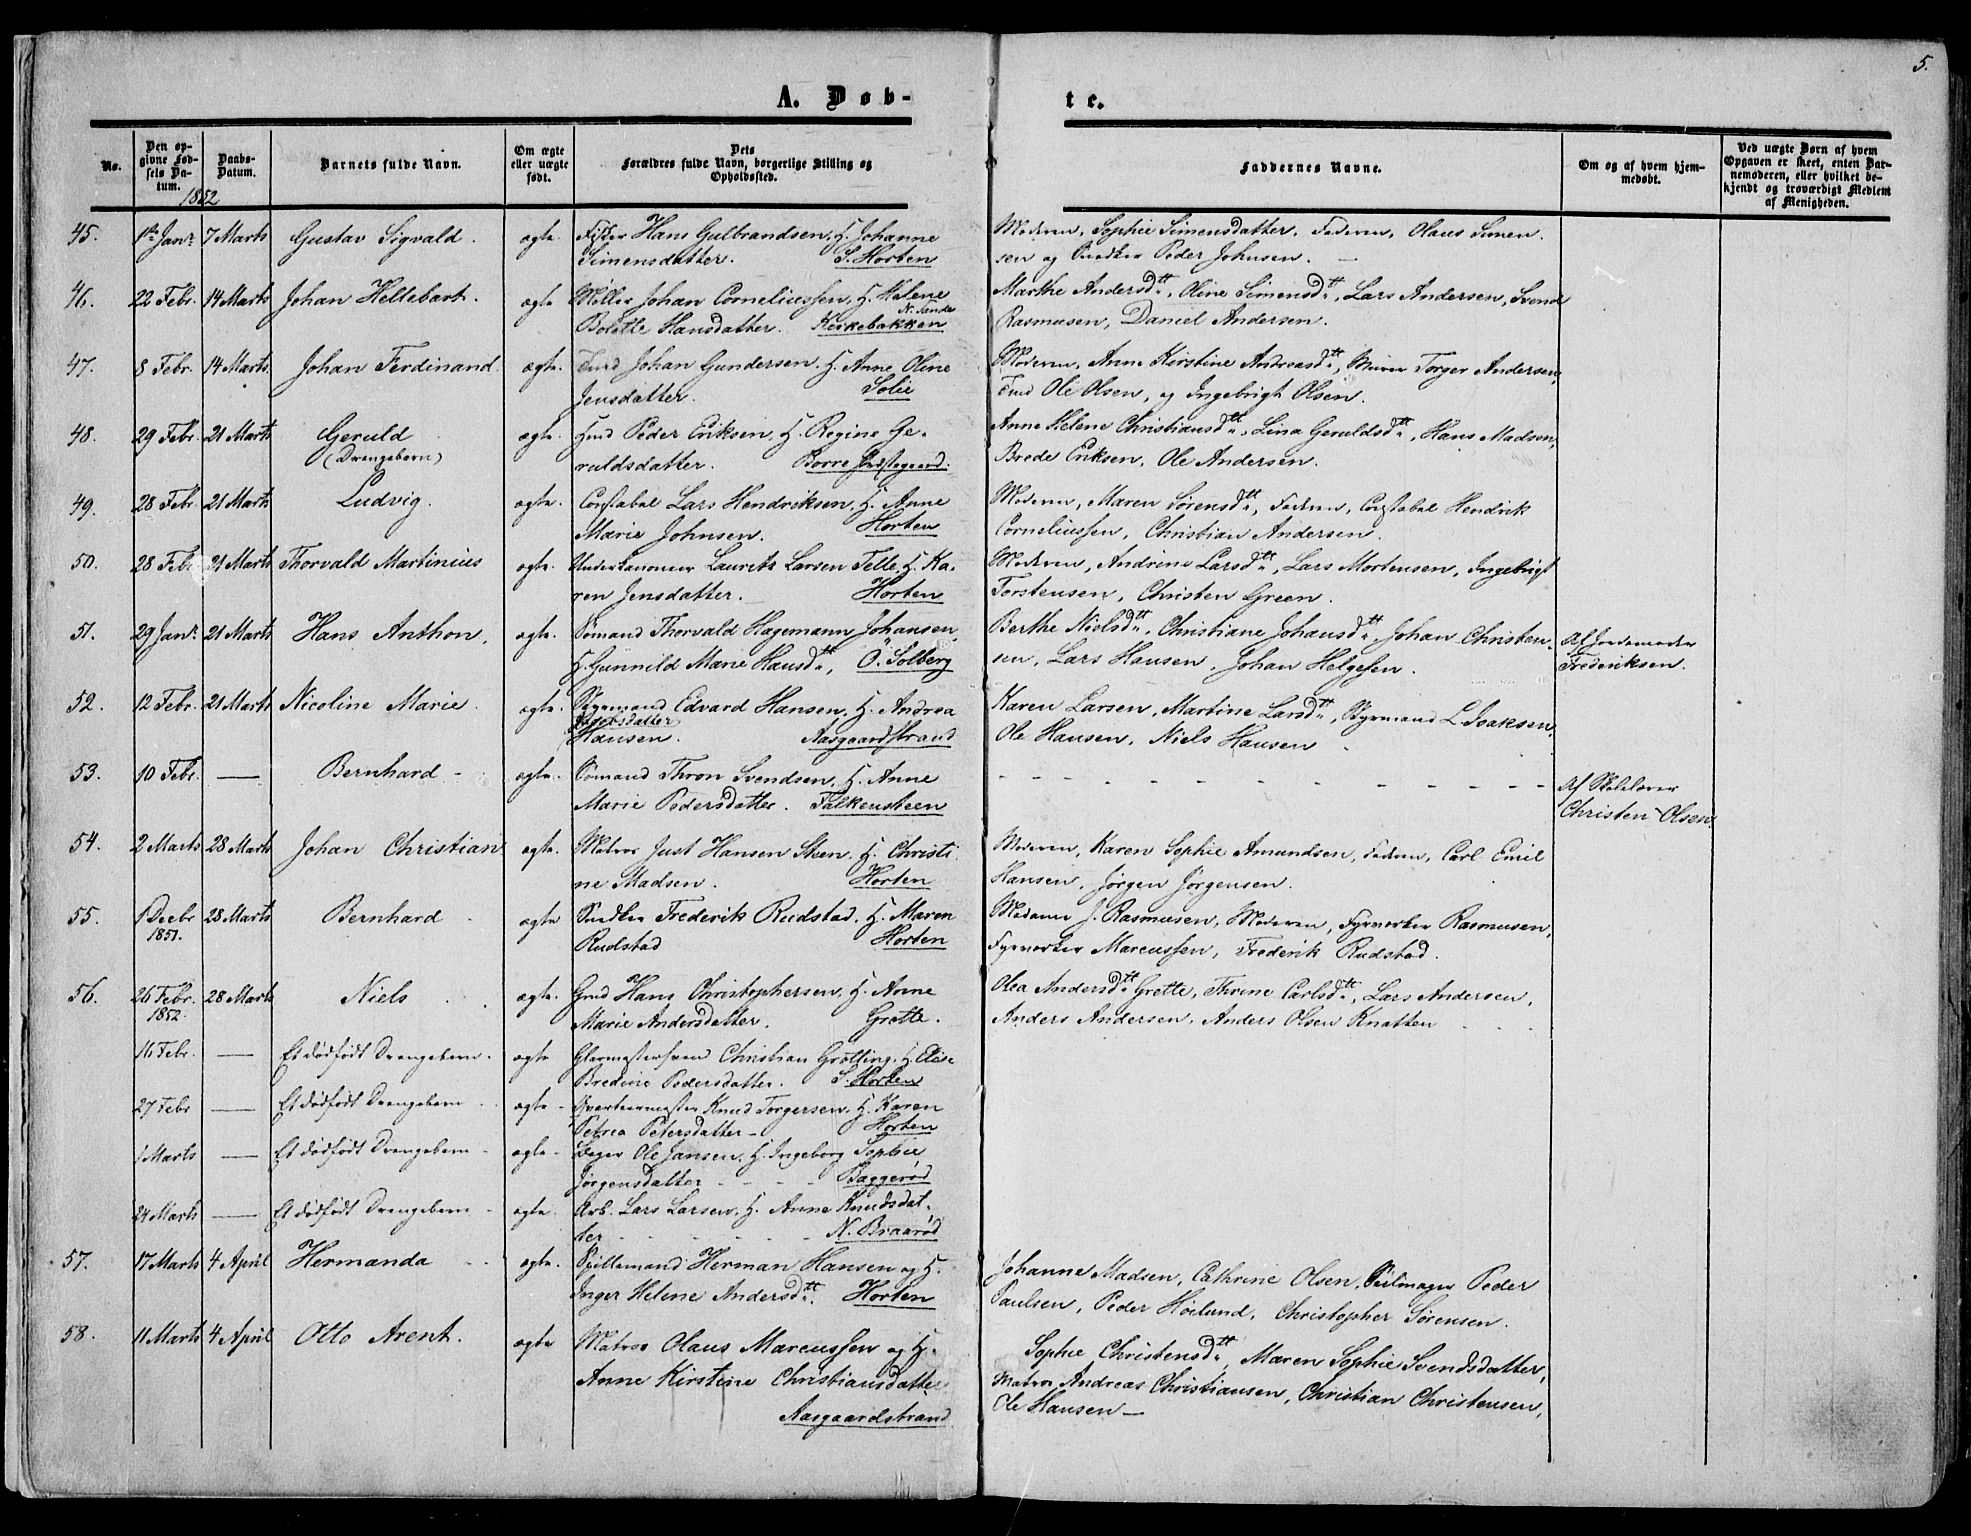 5.
A. Døb-
te.
No.
Den op-
givne Fød-
sels Da-
tum.
Daabs-
Datum.
Barnets fulde Navn.
Om ægte
eller uægte
født.
Dets
Forældres fulde Navn, borgerlige Stilling og
Opholdssted.
Faddernes Navne.
Om og af hvem hjem-
medøbt.
Ved uægte Børn af hvem
Opgaven er skeet, enten Bar-
nemoderen, eller hvilket be-
kjendt og troværdigt Medlem
af Menigheden.
1852
45. 1ste Janr 7 Marts Gustav Sigvald. ægte Fisker Hans Gulbrandsen, H. Johanne
Simensdatter. S. Horten
Moderen, Sophie Simensdatter, Faderen, Olaus Simen
sen og Snedker Peder Johnsen. —
46. 22 Febr. 14 Marts Johan Hellebart. ægte Møller Johan Corneliussen, H. Helene
Bolette Hansdatter. Kirkebakken N. Sande
Marthe Andersdtt, Oline Simensdtt, Lars Andersen, Svend
Rasmusen, Daniel Andersen.
47. 8 Febr. 14 Marts. Johan Ferdinand ægte. Johan Gundersen. H. Anne Oline
Jensdatter. Solie
Moderen, Anne Kirstine Andreasdtt, Murer Torger Andersen,
Ole Olsen, og Ingebrigt Olsen.
48. 29 Febr. 21 Marts Geruld ægte. Hmd Peder Eriksen, H. Regine Ge-
(Drengebarn)
ruldsdatter. Borre Præstegaard.
Anne Helene Christiansdtt, Lina Geruldsdtt, Hans Madsen,
Brede Eriksen, Ole Andersen.
49. 28 Febr. 21 Marts Ludvig. ægte. Constabel Lars Hendriksen, H. Anne
Marie Johnsen. Horten
Moderen, Maren Sørensdtt, Faderen, Constabel Hendrik
Corneliussen, Christian Andersen.
50. 28 Febr. 21 Marts Thorvald Martinius ægte. Underkanoneer Laurits Larsen Telle, H. Ka-
ren Jensdatter. Horten
Moderen, Andrine Larsdtt, Lars Mortensen, Ingebrigt
Torstensen, Christen Green.
51. 29 Janr. 21 Marts Hans Anthon. ægte. Sømand Thorvald Hagemann Johansen,
H. Gunnild Marie Hansdtt, O. Solberg
Berthe Nielsdtt, Christiane Johansdtt, Johan Christen-
sen, Lars Hansen, Johan Helgesen.
Af Jordemoder
Frederiksen.
52. 12 Febr. 21 Marts Nicoline Marie. ægte. Styrmand Edvard Hansen, H. Andrea
Jacobsdatter
Hansen. Aasgaardstrand
Karen Larsen, Martine Larsdtt, Styrmand L. Isaksen,
Ole Hansen, Niels Hansen
53. 10 Febr. — Bernhard - ægte. Sømand Thron Svendsen, H. Anne
Marie Pedersdatter. Falkensteen
Af Skolelærer
Christen Olsen.
54. 2 Marts 28 Marts Johan Christian ægte. Matros Just Hansen Steen. H. Christi
ne Madsen. Horten
Moderen, Karen Sophie Amundsen, Faderen, Carl Emil
Hansen, Jørgen Jørgensen.
55. 1 Decbr 28 Marts Bernhard ægte Snedker Frederik Rudstad, H. Maren
1851.
Rudstad Horten
Madame J. Rasmusen, Moderen, Fyrverker Rasmusen,
Fyrverker Marcussen, Frederik Rudstad.
56. 26 Febr. 28 Marts Niels ægte. Gmd Hans Christophersen, H. Anne
1852.
Marie Andersdatter. Grette.
Olea Andersdtt Grette, Thrine Carlsdtt, Lars Andersen,
Anders Andersen, Anders Olsen Knatten
16 Febr. — Et dødfødt Drengebarn. ægte Glarmestersvend Christian Grøtling. H. Elise
Bredine Pedersdatter. S. Horten
27 Febr — Et dødfødt Drengebarn ægte - Qvarteermester Knud Torgersen. H. Karen
Petrea Petersdatter - Horten
1 Marts — Et dødfødt Drengebarn - ægte - Bager Ole Jansen. H. Ingeborg Sophie
Jørgensdatter - - - - Baggerød
24 Marts — Et dødfødt Drengebarn - ægte. Arb. Lars Larsen. H. Anne Knudsdat-
ter - - - - - - N. Braarød
57. 17 Marts 4 April Hermanda ægte. Spillemand Herman Hansen og H.
Inger Helene Andersdtt. Horten
Johanne Madsen, Cathrine Olsen, Seilmager Peder
Paulsen, Peder Høilund, Christopher Sørensen.
58. 11 Marts 4 April Otto Arent. ægte Matros Olaus Marcussen og H.
Anne Kirstine Christiansdatter
Aasgaardstrand
Sophie Christensdtt, Maren Sophie Svendsdatter,
Matros Andreas Christiansen, Christian Christensen,
Ole Hansen —